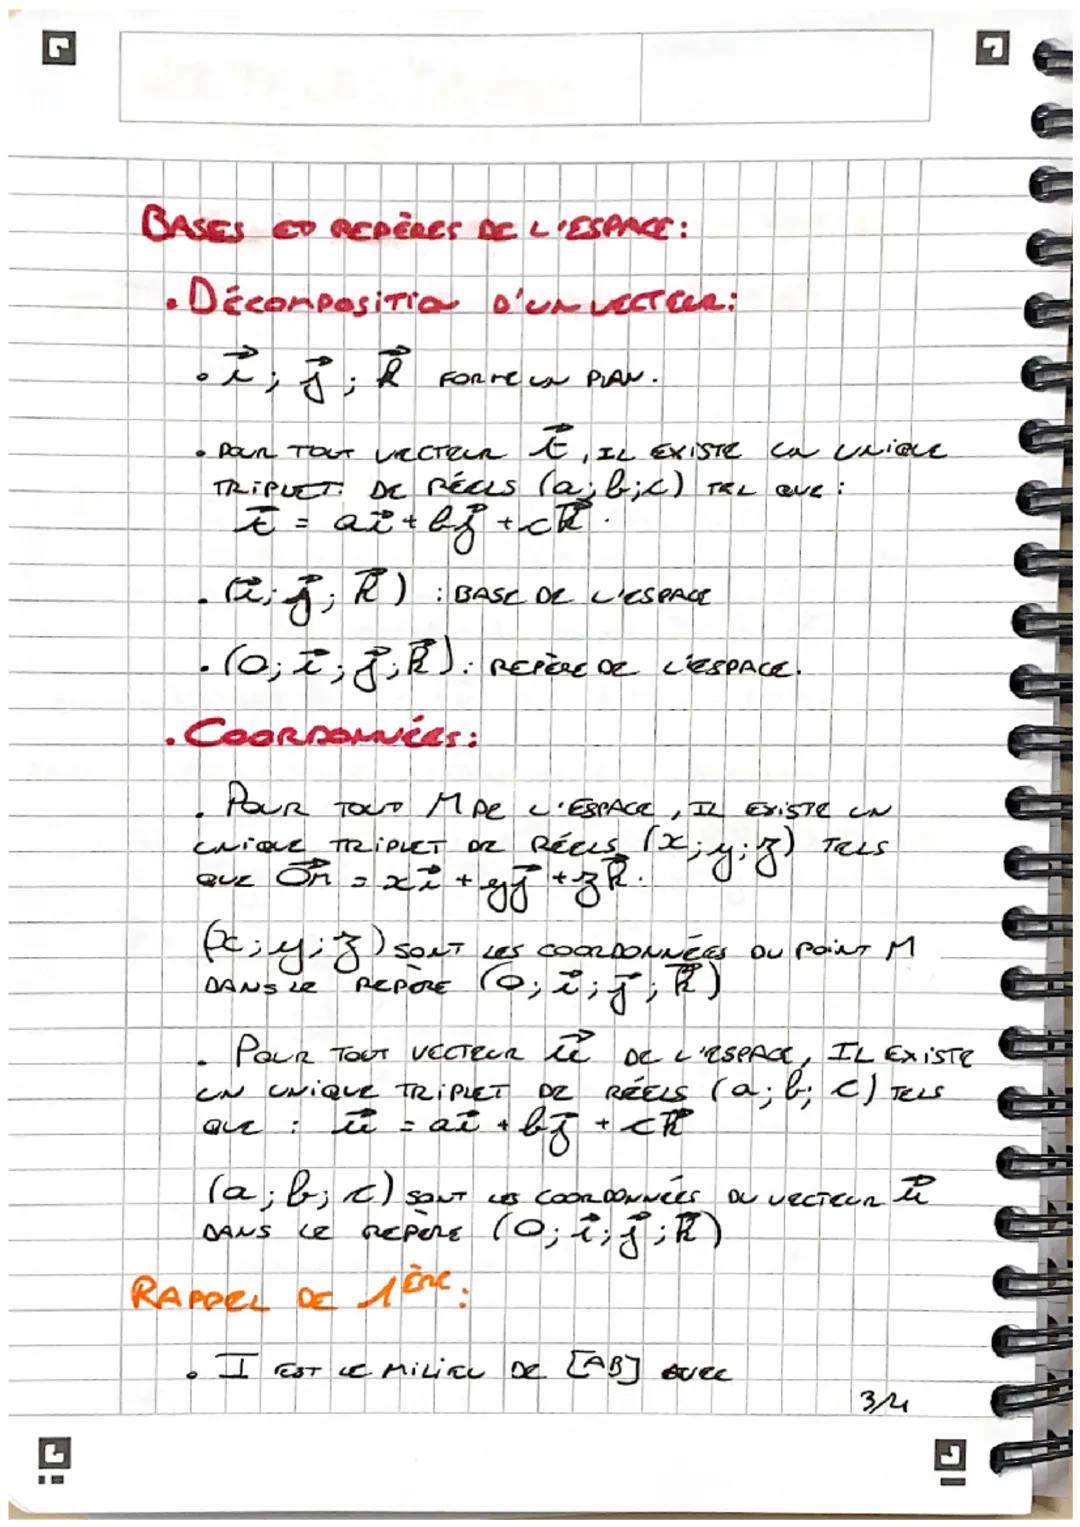 BASES ET REPÈRES DE L'ESPACE :
. DÉCOMPOSITION D'UN VECTEUR :
. i⃗ ; j⃗ ; k⃗ FORME UN PLAN.
. POUR TOUT VECTEUR t⃗, IL EXISTE UN UNIQUE
TRIPLET DE RÉELS (a; b; c) TEL QUE :
t⃗ = ai⃗ + bj⃗ + ck⃗.
. (i⃗; j⃗; k⃗) : BASE DE L'ESPACE
. (O; i⃗; j⃗; k⃗) : REPÈRE DE L'ESPACE.
. COORDONNÉES :
. POUR TOUT M DE L'ESPACE, IL EXISTE UN
UNIQUE TRIPLET DE RÉELS (x; y; z) TELS
QUE OM⃗ = xi⃗ + yj⃗ + zk⃗.
(x; y; z) SONT LES COORDONNÉES DU POINT M
DANS LE REPÈRE (O; i⃗; j⃗; k⃗)
. POUR TOUT VECTEUR u⃗ DE L'ESPACE, IL EXISTE
UN UNIQUE TRIPLET DE RÉELS (a; b; c) TELS
QUE : u⃗ = ai⃗ + bj⃗ + ck⃗
(a; b; c) SONT LES COORDONNÉES DU VECTEUR u⃗
DANS LE REPÈRE (O; i⃗; j⃗; k⃗)
RAPPEL DE 1ÈRE :
. I EST LE MILIEU DE [AB] AVEC
3/4